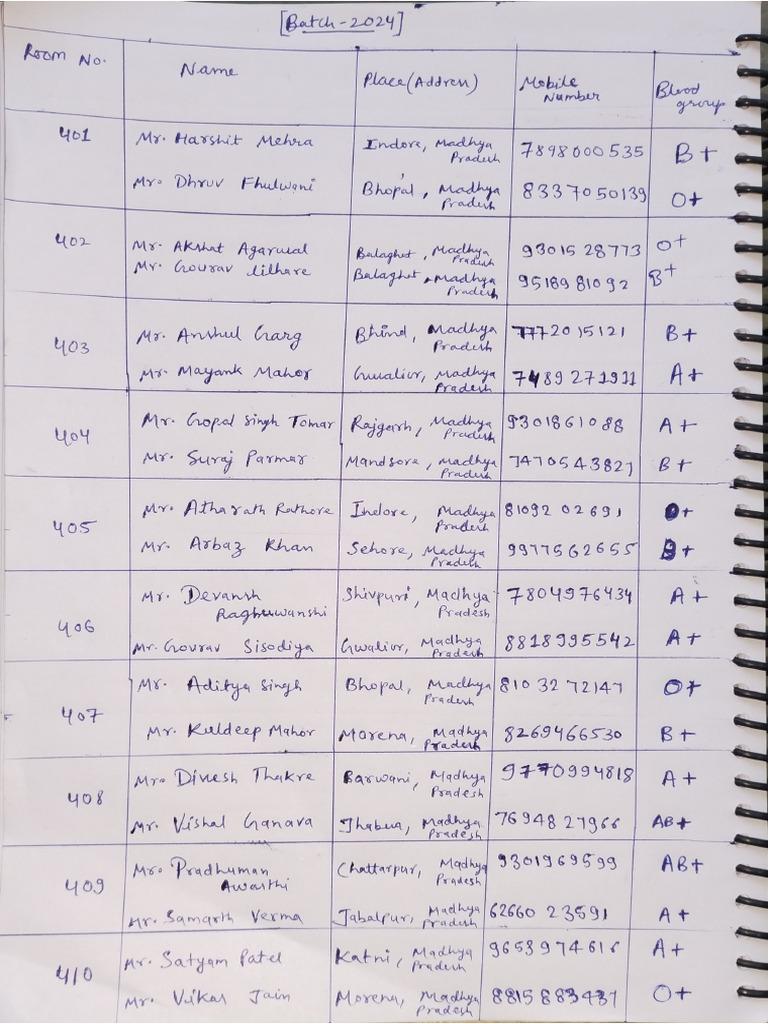 [Batch-2024]
Room No. Name Place (Address) Mobile Number Blood group
401 Mr. Harshit Mehra Indore, Madhya Pradesh 7898000535 B+
Mr. Dhruv Fhulwani Bhopal, Madhya Pradesh 8337050139 O+
402 Mr. Akshat Agarwal Balaghat, Madhya Pradesh 9301528773 O+
Mr. Gourav lilhare Balaghat, Madhya Pradesh 9518981092 B+
403 Mr. Anshul Garg Bhind, Madhya Pradesh 7772015121 B+
Mr. Mayank Mahor Gwalior, Madhya Pradesh 7489271911 A+
404 Mr. Gopal Singh Tomar Rajgarh, Madhya Pradesh 9301861088 A+
Mr. Suraj Parmar Mandsore, Madhya Pradesh 7470543827 B+
405 Mr. Atharath Rathore Indore, Madhya Pradesh 8109202691 O+
Mr. Arbaz Khan Sehore, Madhya Pradesh 9977562655 B+
406 Mr. Devansh Raghuwanshi Shivpuri, Madhya Pradesh 7804976434 A+
Mr. Gourav Sisodiya Gwalior, Madhya Pradesh 8818995542 A+
407 Mr. Aditya Singh Bhopal, Madhya Pradesh 8103272147 O+
Mr. Kuldeep Mahor Morena, Madhya Pradesh 8269466530 B+
408 Mr. Divesh Thakre Barwani, Madhya Pradesh 9770994818 A+
Mr. Vishal Ganava Jhabua, Madhya Pradesh 7694827966 AB+
409 Mr. Pradhuman Awasthi Chattarpur, Madhya Pradesh 9301969599 AB+
Mr. Samarth Verma Jabalpur, Madhya Pradesh 6266023591 A+
410 Mr. Satyam Patel Katni, Madhya Pradesh 9653974616 A+
Mr. Vikas Jain Morena, Madhya Pradesh 8815883437 O+